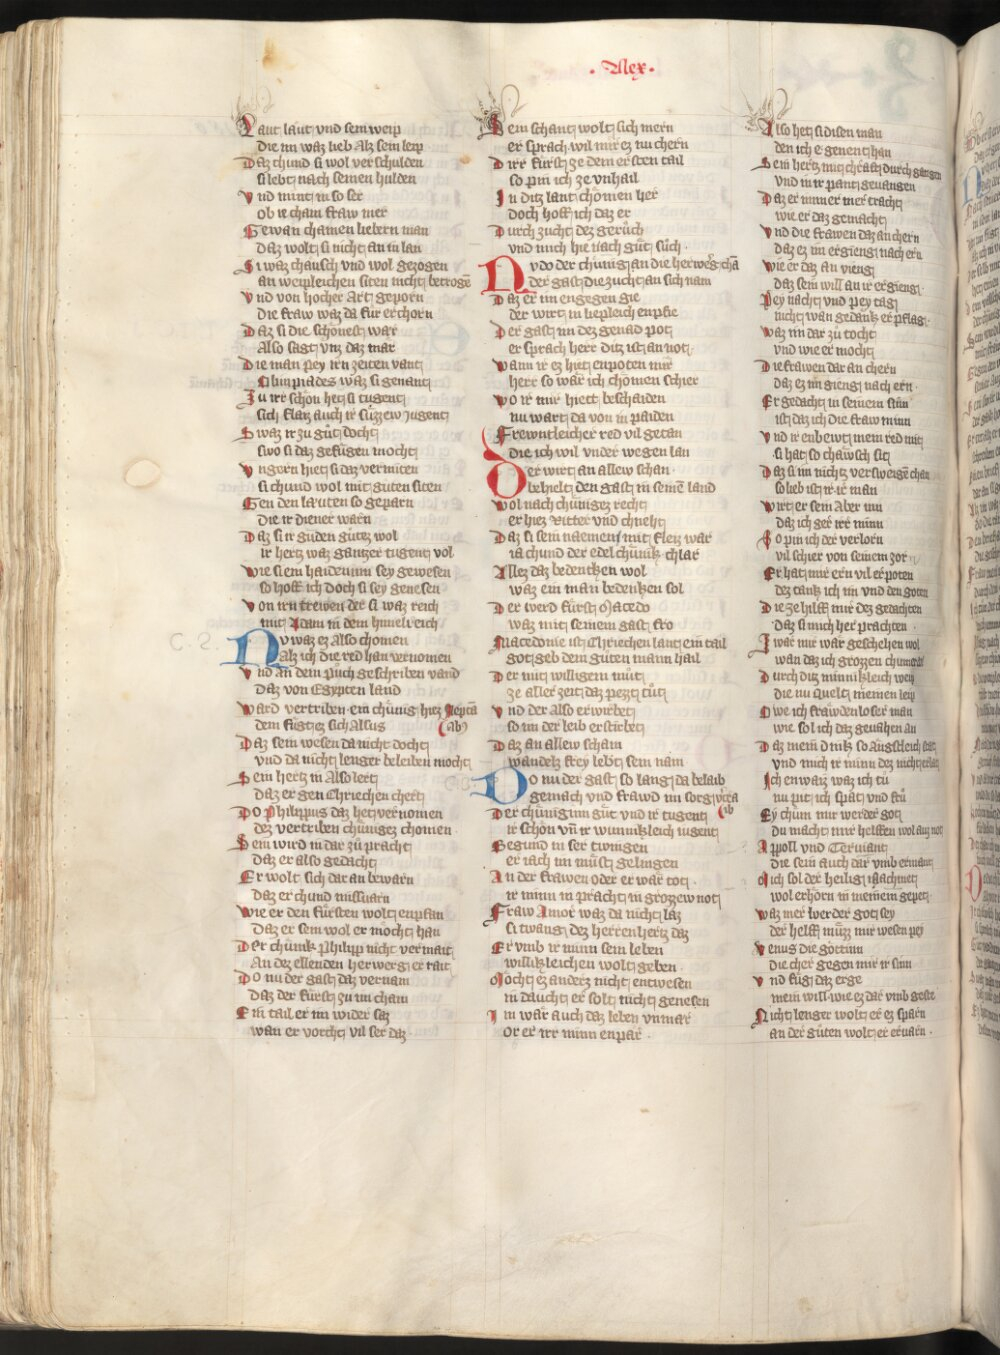 · Alex ·
Laut laut vnd sein weip
die im waz lieb Alz sein leip
Daz chund si wol verschulden
si lebt nach seinen hulden
Vnd mint in so ser
ob ir cham fraw mer
Gewan chainen liebern man
daz wolt si nicht an in lan
Si waz chausch vnd wol gezogen
an weipleichen siten nicht betrogē
Vnd von hocher Art geporn
die fraw waz da für erchorn
Daz si die schönest war
Also sagt vnz daz mär
Die man pey irn zeiten vant
Olimpiades waz si genant
Zu irr schön het si tugent
sich flaiz auch ir süzzew jugent
Swaz ir zu gůt docht
swo si daz gefügen mocht
Vngern hiet si daz vermiten
si chund wol mit guten siten
Gen den lauten so geparn
die ir diener warn
Daz si ir gunden gutez wol
ir hertz waz gantzer tugent vol
Wie si ein haideninn sey gewesen
so hoff ich doch si sey genesen
Von irn trewen der si waz reich
mit Adam in dem himelreich
Nv waz ez Also chomen
Alz ich die red han vernomen
Vnd an dem půch geschriben vand
daz von Egypten land
Ward vertriben ein chünig hiez Nepta
dem fügt ez sich Alsus
nabꝰ
Daz sein wesen da nicht docht
vnd da nicht lenger beleiben mocht
Sein hertz in Also lert
daz er gen Chriechen chert
Do Philippus daz het vernomen
dez vertriben chünigez chomen
Sein wird in dar zů pracht
daz er also gedacht
Er wolt sich dar an bewarn
daz er chund missuarn
Wie er den fürsten wolt enpfan
daz er sein wol er mocht han
Der chünik Philipp nicht vermait
An dez ellenden herwerg er rait
Do nu der gast daz vernam
daz der fürst zu im cham
Ein tail er im wider saz
wan er vorcht vil ser daz
Sein schant wolt sich mern
er sprach wil mir ez nu chern
Dirr fürst ze dem ersten tail
so pin ich ze vnhail
In ditz lant chomen her
doch hoff ich daz er
Durch zucht dez geruch
vnd mich hie nach gůt sůch ·
Nv do der chünig an die herwerg chā
der gast die zucht an sich nam
Daz er im engegen gie
der wirt in liepleich enpfie
Der gast im dez genad pot
er sprach herr ditz ist an not ·
Wann ir ez hiet enpoten mir
herr so wär ich chomen schier
Wo ir mir hiett bescheiden
nu wart da von in paiden
Frewntleicher red vil getan
die ich wil vnder wegen lan
Der wirt an allew schan ·
behielt den gast in seinē land
Wol nach chüniges recht
er hiez Ritter vnd chneht
Daz si sein naemen mit fleiz war
ia chund der edel chünik chlar
Allez daz bedenchen wol
waz ein man bedenken sol
Der werd fürst Macedo
waz mit seinem gast fro
Macedonie ist Chriechen lant ein tail
got geb dem guten mann hail
Der mit willigem můt
ze aller zeit daz pezt tůt
Vnd der Also erwirbet
so im der leib erstirbet
Daz an allew scham
wandels frey lebt sein nam
Do nu der gast so lang da belaib
gemach vnd frawd im sorg vˢtra
ib
Der chüniginn güt vnd ir tugent
ir schön vnd ir wunnikleich iugent
Begund in ser twingen
er iach im müst gelingen
An der frawen oder er wär tot ·
ir minn in pracht in grozzew not
Fraw Amor waz da nicht laz
si twang dez herren hertz daz
Er vmb ir minn sein leben
willikleichen wolt geben ·
Mocht ez anders nicht entwesen
in daucht er solt nicht genesen
Im wär auch daz leben vnmär
or er irr minn enpär ·
Also het si disen man
den ich e genent han
Sein hertz mit chraft durch gangen
vnd in ir pant geuangen
Daz er immer mer tracht
wie er daz gemacht
Vnd die frawen daz an chern
daz ez im ergieng nach ern
Wie er daz an vieng
daz sein will an ir ergieng ·
Pey nacht vnd pey tag
nicht wan gedank er pflag ·
Waz im dar zů tocht
vnd wie er mocht
Die frawen dar an chern
daz ez im gieng nach ern ·
Er gedacht in seinem sinn
ist daz ich die fraw minn
Vnd ir enbewt mein red mit
si hat so chäwsch sit
Daz si im nichtz versweigē chan
so lieb ist ir ir man
Wirt er sein Aber inn
daz ich ger irr minn
So pin ich der verlorn
vil schier von seinem zorn
Er hat mir ern vil erpoten
dez tank ich im vnd den goten
Die ze hilff mir dez gedachten
daz si mich her prachten ·
Zwar mir wär geschehen wol
wan daz ich grozzen chumer
Durch ditz minnikleich weip
die nu quelt meinen leip
Owe ich frawden loser man
wie sol ich daz geuahen an
Daz mein dink so angstleich
vnd mich ir minn dez nicht erlat
Ich enwaiz waz ich tů
nu pit ich spät vnd frů
Ey chüm mir werder got
du macht mir helffen wol auz not
Appoll vnd Teruiant
die sein auch dar vmb ermant
Mich sol der heilig Machmet
wol erhörn in meinem gepet ·
Waz mer werder got sey
der helff müzz mir wesen pey
Venus die göttinn
die cher gegen mir ir sinn
Vnd füg daz erge
mein will wie ez dar vmb geste
Nicht lenger wolt er ez sparn
an der guten wolt er eruarn ·
C. 2.